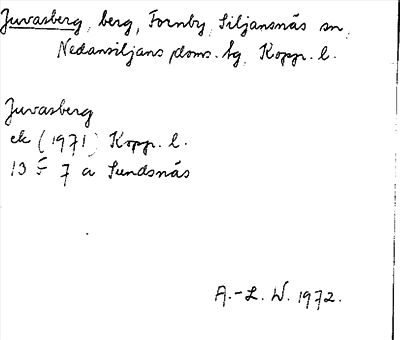 Juvasberg, berg, Fornby, Siljansnäs sn,
Nedansiljans doms. tg, Kopp. l.
Juvasberg
ek (1971) Kopp. l.
13 F 7 a Sundsnäs
A.-L. W. 1972.